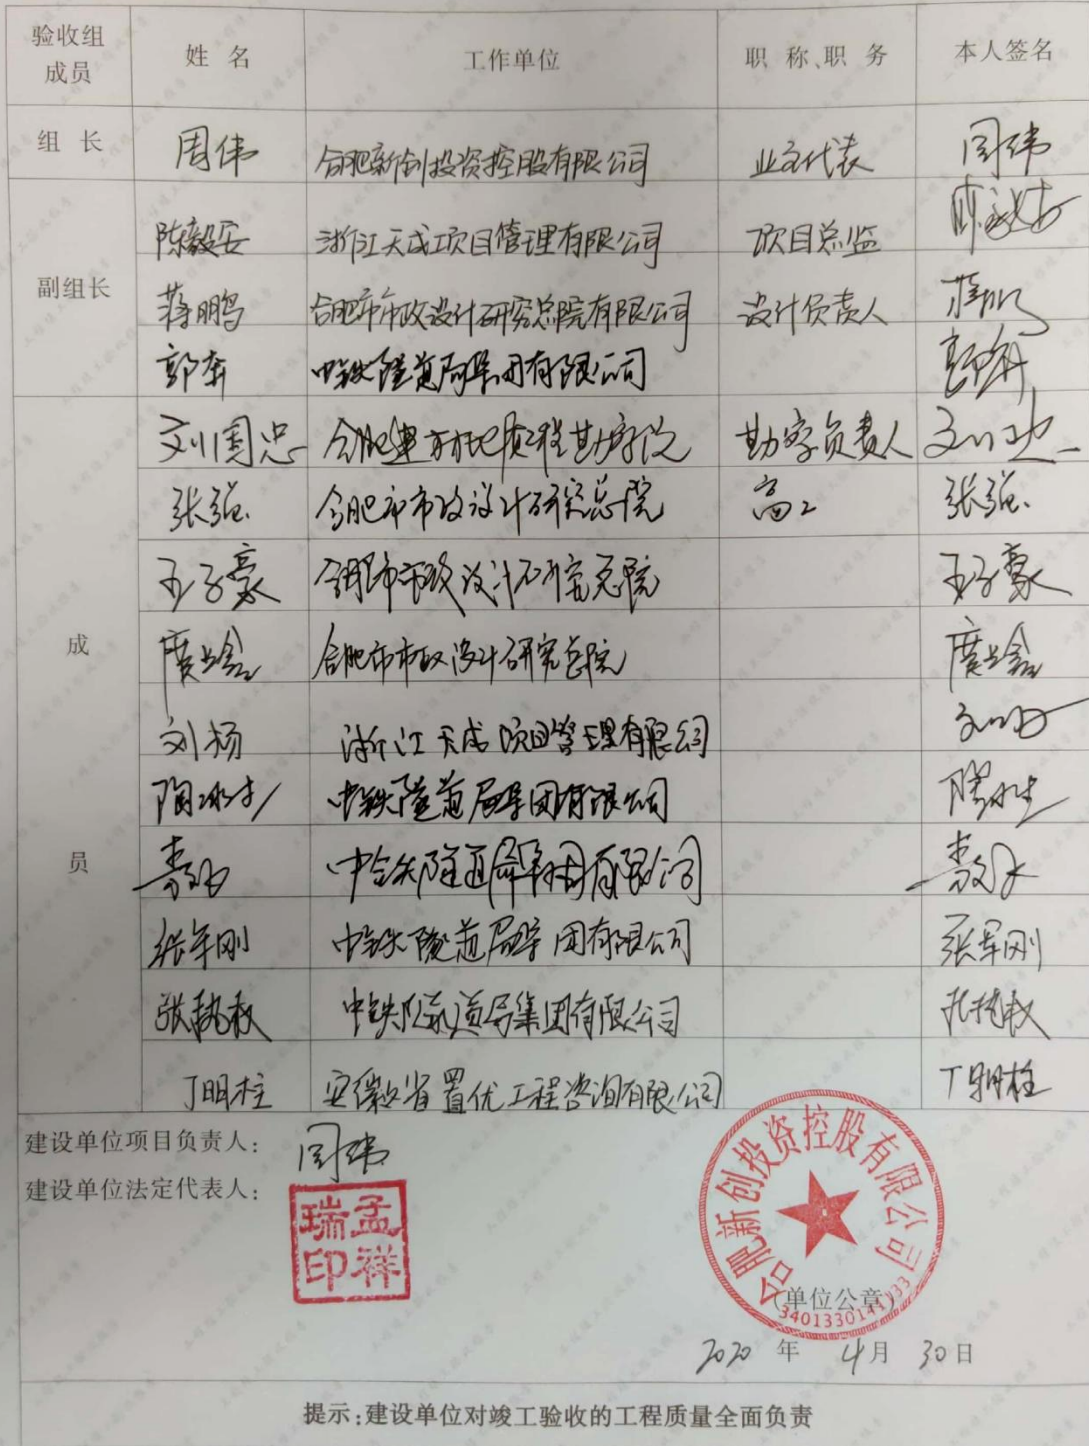 验收组成员 姓名 工作单位 职称、职务 本人签名
组长 周伟 合肥新创投资控股有限公司 业主代表 周伟
副组长
陈毅安 浙江天成项目管理有限公司 项目总监
蒋鹏 合肥市市政设计研究总院有限公司 设计负责人 蒋鹏
郭奔 中铁隧道局集团有限公司
成员
刘国忠 勘察负责人
张强 合肥市市政设计研究总院 高工 张强
王子豪 合肥市市政设计研究总院 王子豪
合肥市市政设计研究总院
刘杨 浙江天成项目管理有限公司
陶冰 中铁隧道局集团有限公司
中铁隧道局集团有限公司
张军刚 中铁隧道局集团有限公司 张军刚
张执权 中铁隧道局集团有限公司 张执权
丁明柱 安徽省置优工程咨询有限公司 丁明柱
建设单位项目负责人: 周伟
建设单位法定代表人: 孟祥瑞印
合肥新创投资控股有限公司
(单位公章)
2020 年 4 月 30 日
提示:建设单位对竣工验收的工程质量全面负责